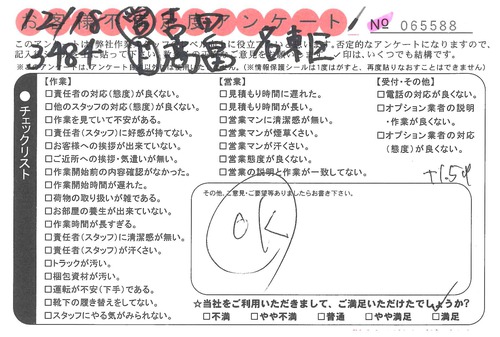 お客様不満足度アンケート
No 065588
チェックリスト
【作業】
□責任者の対応(態度)が良くない。
□他のスタッフの対応(態度)が良くない。
□作業を見ていて不安がある。
□責任者(スタッフ)に好感が持てない。
□お客様への挨拶が出来ていない。
□ご近所への挨拶・気遣いが無い。
□作業開始前の内容確認がなかった。
□作業開始時間が遅れた。
□荷物の取り扱いが雑である。
□お部屋の養生が出来ていない。
□作業時間が長すぎる。
□責任者(スタッフ)に清潔感が無い。
□責任者(スタッフ)が汗くさい。
□トラックが汚い。
□梱包資材が汚い。
□運転が不安(下手)である。
□靴下の履き替えをしてない。
□スタッフにやる気がみられない。
【営業】
□見積もり時間に遅れた。
□見積もり時間が長い。
□営業マンに清潔感が無い。
□営業マンが煙草くさい。
□営業マンが汗くさい。
□営業態度が良くない。
□営業の説明と作業が一致してない。
【受付・その他】
□電話の対応が良くない。
□オプション業者の説明
・作業が良くない。
□オプション業者の対応
(態度)が良くない。
その他、ご意見・ご要望等ありましたらお書き下さい。
OK
☆当社をご利用いただきまして、ご満足いただけたでしょうか?
□不満 □やや不満 □普通 □やや満足 □満足